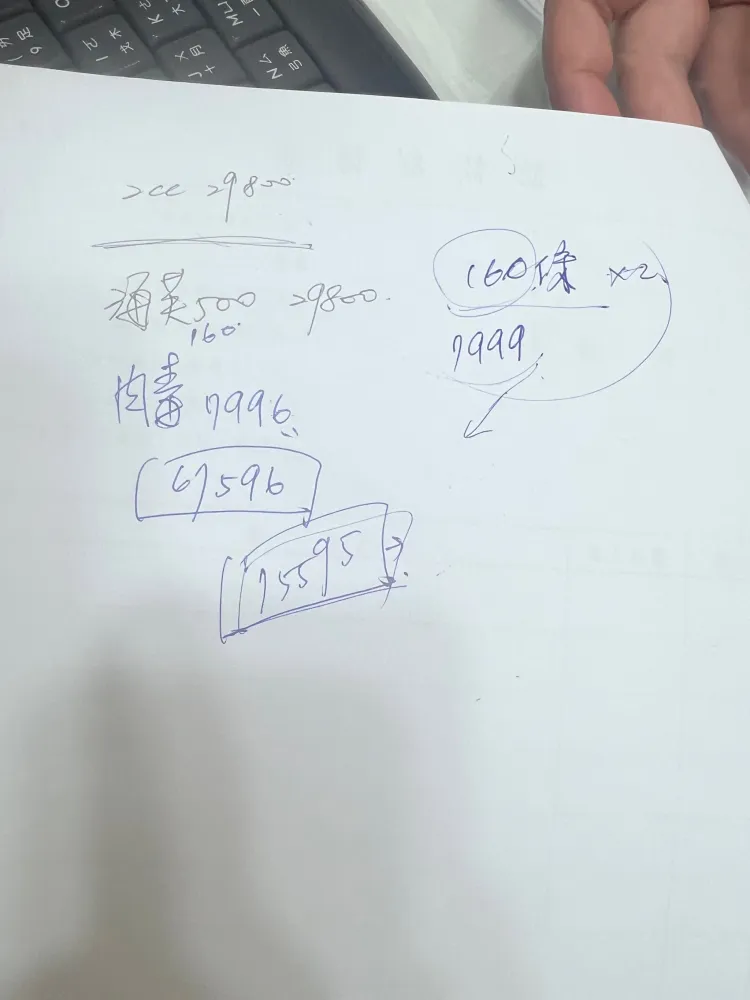 2cc 29800
海芙500 29800.
160
肉毒 7996
67596
75595
160條 x2
7999